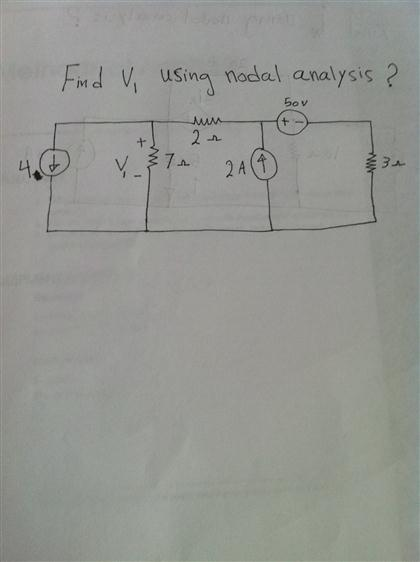 Find V₁ using nodal analysis ?
50v
+ -
+
2 Ω
4
V₁
7 Ω
2 A
3 Ω
-